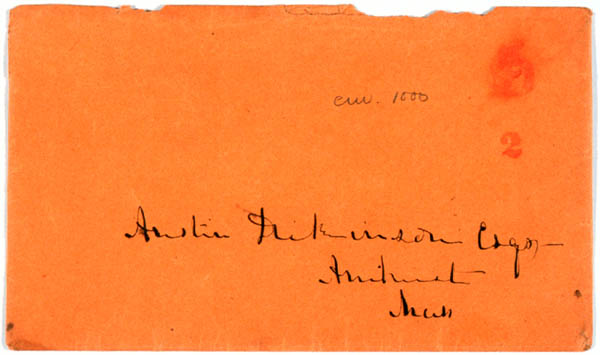 env. 1000
2
Austin Dickinson Esqr
Amherst
Mass